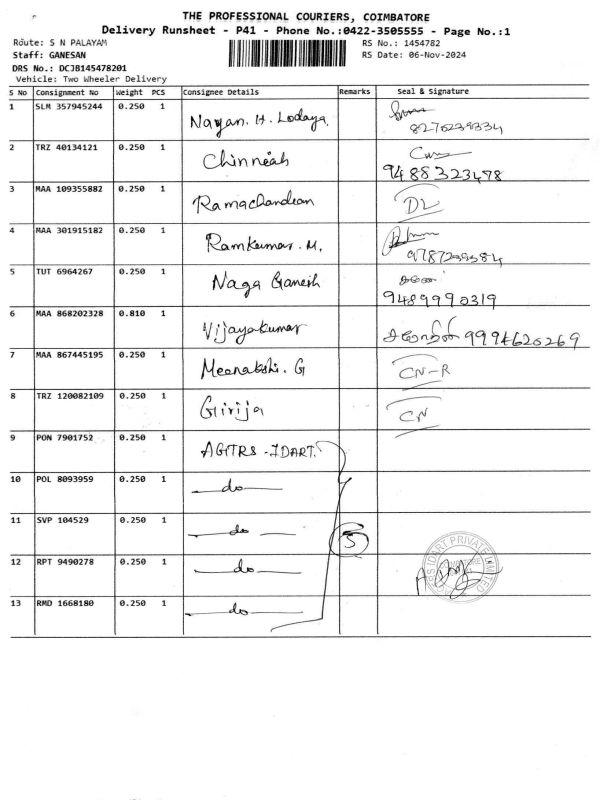 THE PROFESSIONAL COURIERS, COIMBATORE
Delivery Runsheet - P41 - Phone No.:0422-3505555 - Page No.:1
Route: S N PALAYAM
RS No.: 1454782
Staff: GANESAN
RS Date: 06-Nov-2024
DRS No.: DCJB145478201
Vehicle: Two Wheeler Delivery
S No Consignment No Weight PCS Consignee Details Remarks Seal & Signature
1 SLM 357945244 0.250 1 Nayan. H. Lodaya.
8270239334
2 TRZ 40134121 0.250 1 Chinneah
9488323478
3 MAA 109355882 0.250 1 Ramachandran DL
4 MAA 301915182 0.250 1 Ramkumar. M.
9787239384
5 TUT 6964267 0.250 1 Naga Ganesh
9489990319
6 MAA 868202328 0.810 1 Vijayakumar 9994620269
7 MAA 867445195 0.250 1 Meenakshi. G CN-R
8 TRZ 120082109 0.250 1 Girija CN
9 PON 7901752 0.250 1 AGTRS - IDART.
10 POL 8093959 0.250 1 — do —
11 SVP 104529 0.250 1 — do — 5
12 RPT 9490278 0.250 1 — do —
13 RMD 1668180 0.250 1 — do —
IDART PRIVATE LIMITED